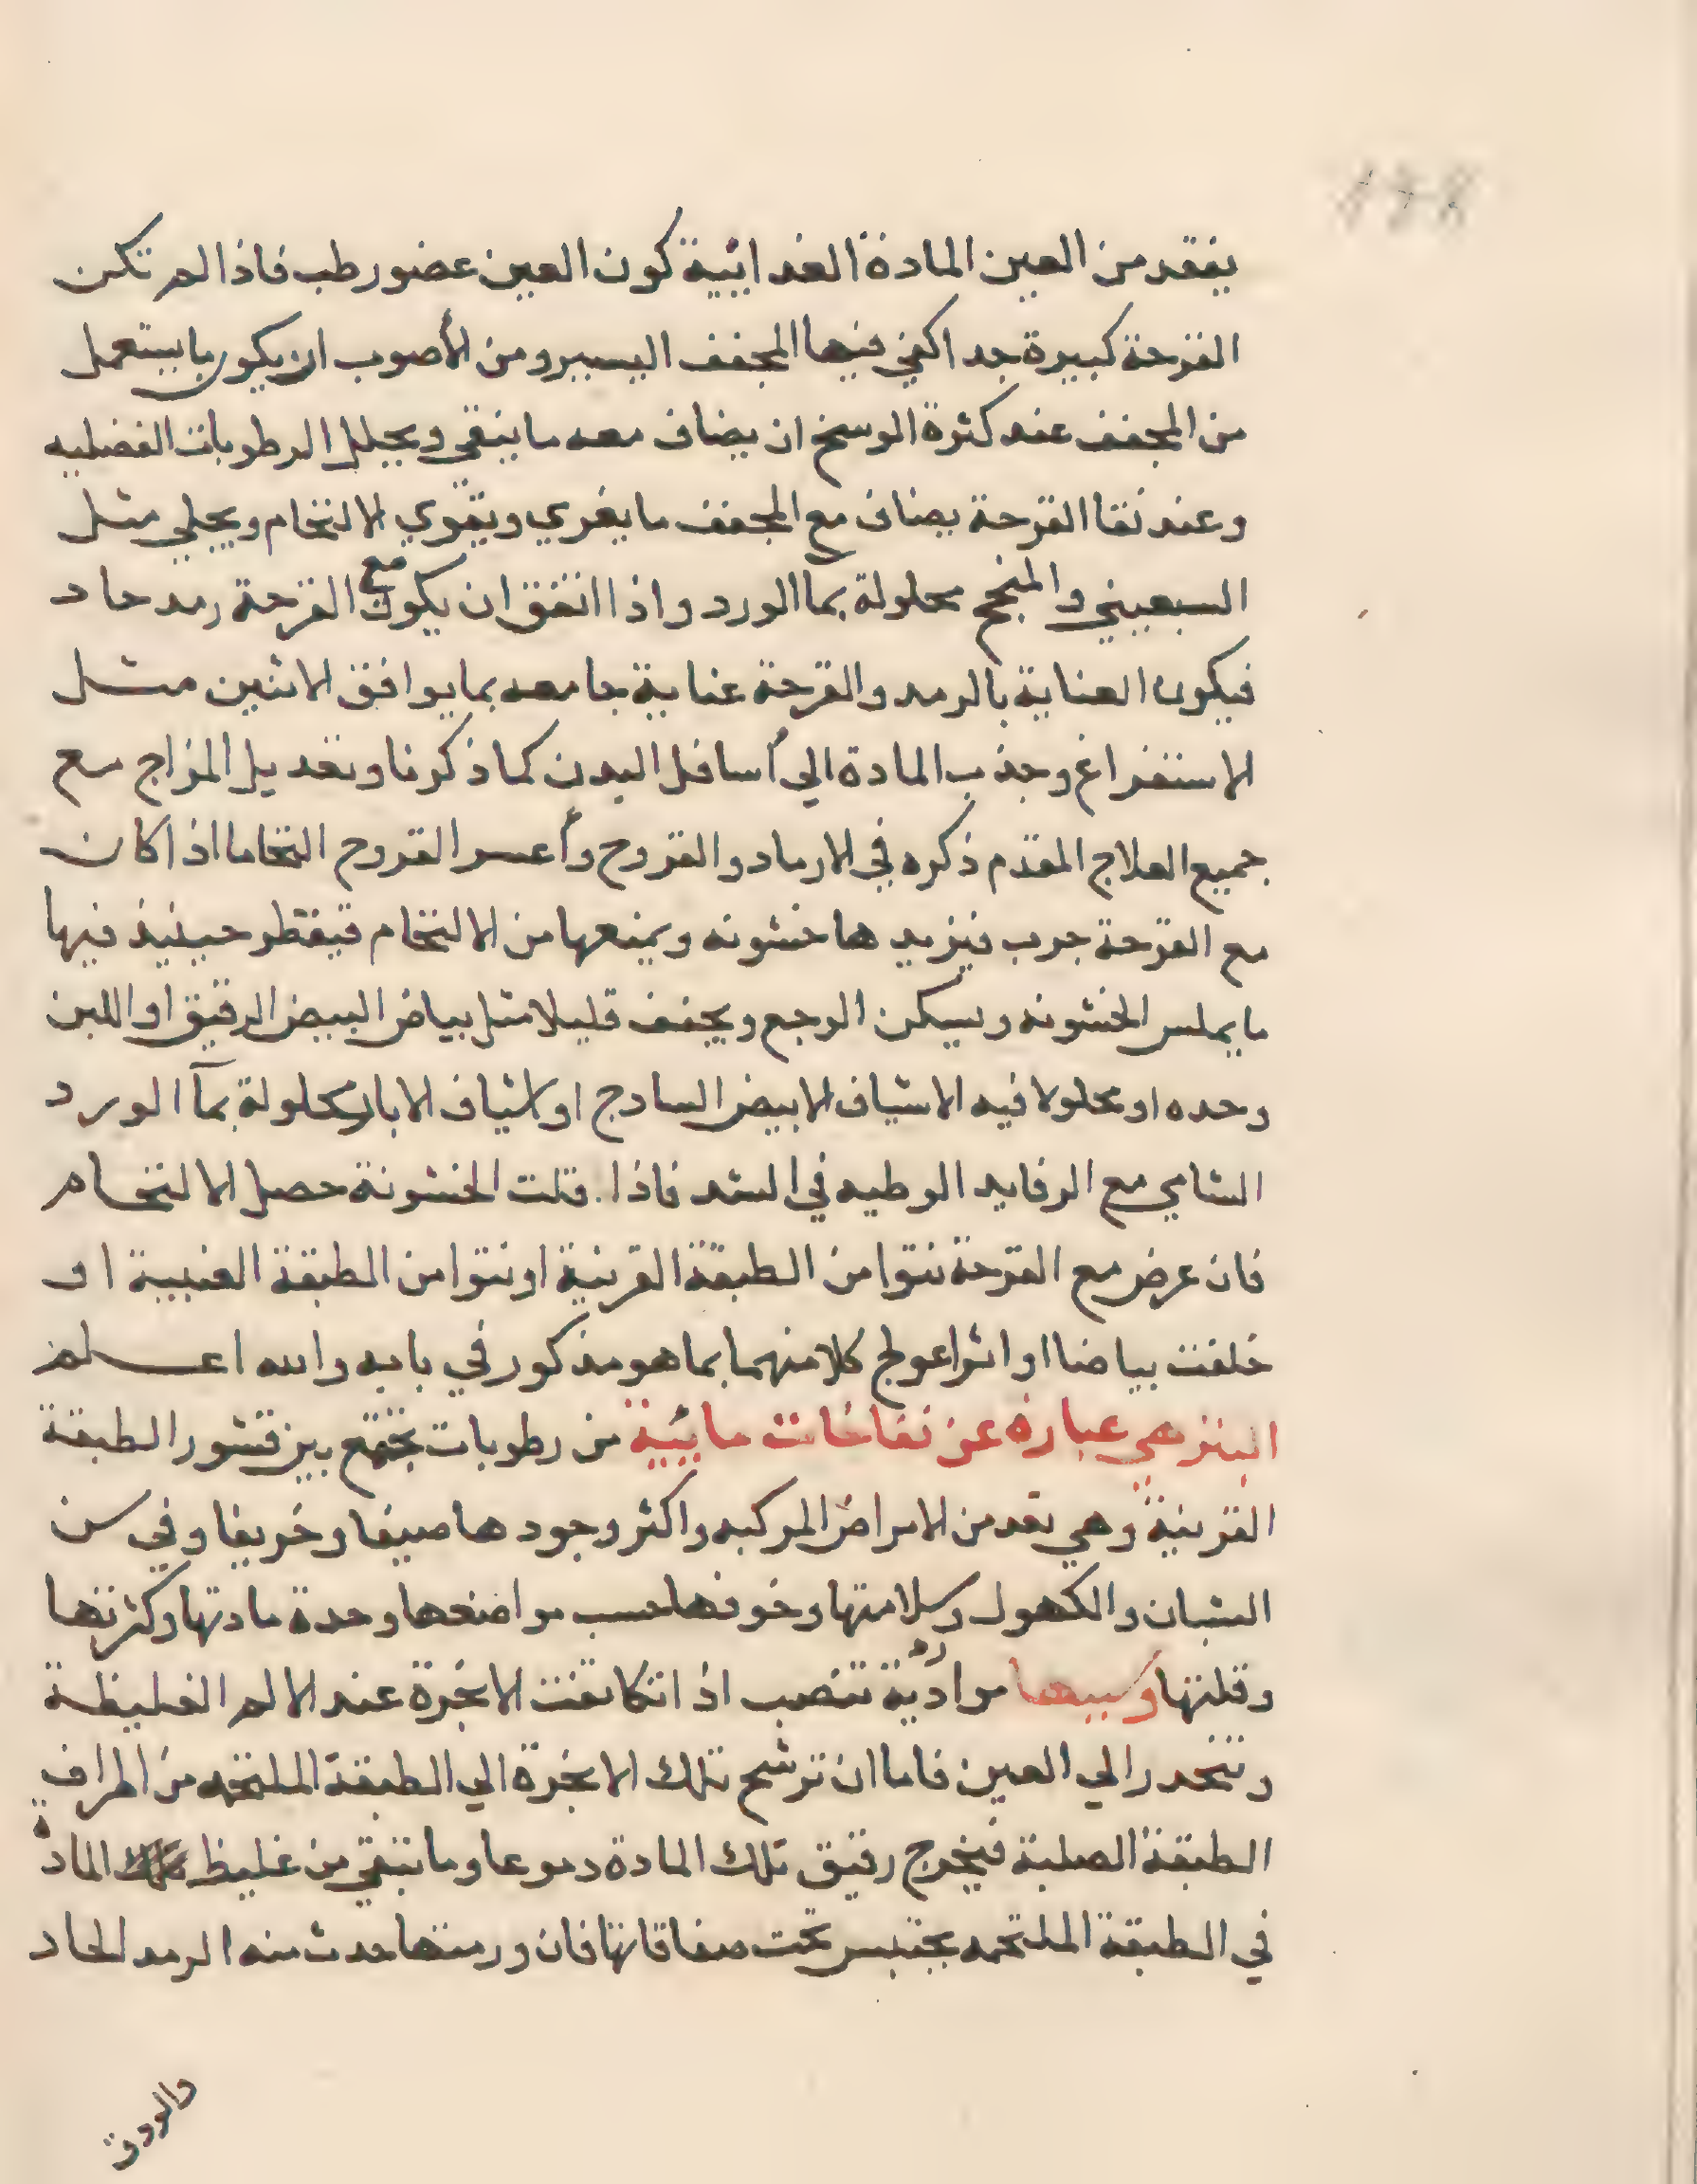 يفقد من العين المادة الغدائية كون العين عضو رطب فاذا لم تكن
القرحة كبيرة جدا اكفي فيها المجفف اليسير ومن الأصوب ان يكون ما يستعمل
من المجفف عند كثرة الوسخ ان يضاف معه ما ينقي ويحلل الرطوبات الفضليه
وعند نقا القرحة يضاف مع المجفف ما يغري ويقوي الالتحام ويجلي مثل
السبعيني والمنجح محلولة بما الورد واذا اتفق ان يكون مع القرحة رمد حاد
فيكون العناية بالرمد والقرحة عناية جامعه بما يوافق الاثنين مثل
الاستفراغ وجذب المادة الي أسافل البدن كما ذكرنا وتعديل المزاج مع
جميع العلاج المقدم ذكره في الارماد والقروح وأعسر القروح التحاما اذا كان
مع القرحة جرب فيزيدها خشونه ويمنعها من الالتحام فيقطر حينيذ فيها
ما يملس الخشونه ويسكن الوجع ويجفف قليلا مثل بياض البيض الرقيق او اللبن
وحده او محلولا فيه الاشياف الابيض السادج او اشياف الابار محلولة بمآ الورد
الشامي مع الرفايد الوطيه في الشد فاذا قلت الخشونة حصل الالتحام
فان عرض مع القرحة نتوا من الطبقة القرنية او نتوا من الطبقة العنبية او
خلفت بياضا او اثرا عولج كلا منهما بما هو مذكور في بابه والله اعلم
البثر هي عبارة عن نفاخات مائية من رطوبات تجتمع بين قشور الطبقة
القرنية وهي تعد من الامراض المركبه واكثر وجودها صيفا وخريفا وفي سن
الشبان والكهول وسلامتها وخوفها حسب مواضعها وحدة مادتها وكثرتها
وقلتها وسببها مواد ردية تنصب اذا تكاثفت الابخرة عند الالم الغليظة
وتنحدر الي العين فاما ان ترشح تلك الابخرة الي الطبقة الملتحمه من اطراف
الطبقة الصلبة فيخرج رقيق تلك المادة دموعا وما تبقي من غليظ المادة
في الطبقة الملتحمه يحتبس تحت صفاقاتها فان ورمتها حدث منه الرمد الحاد